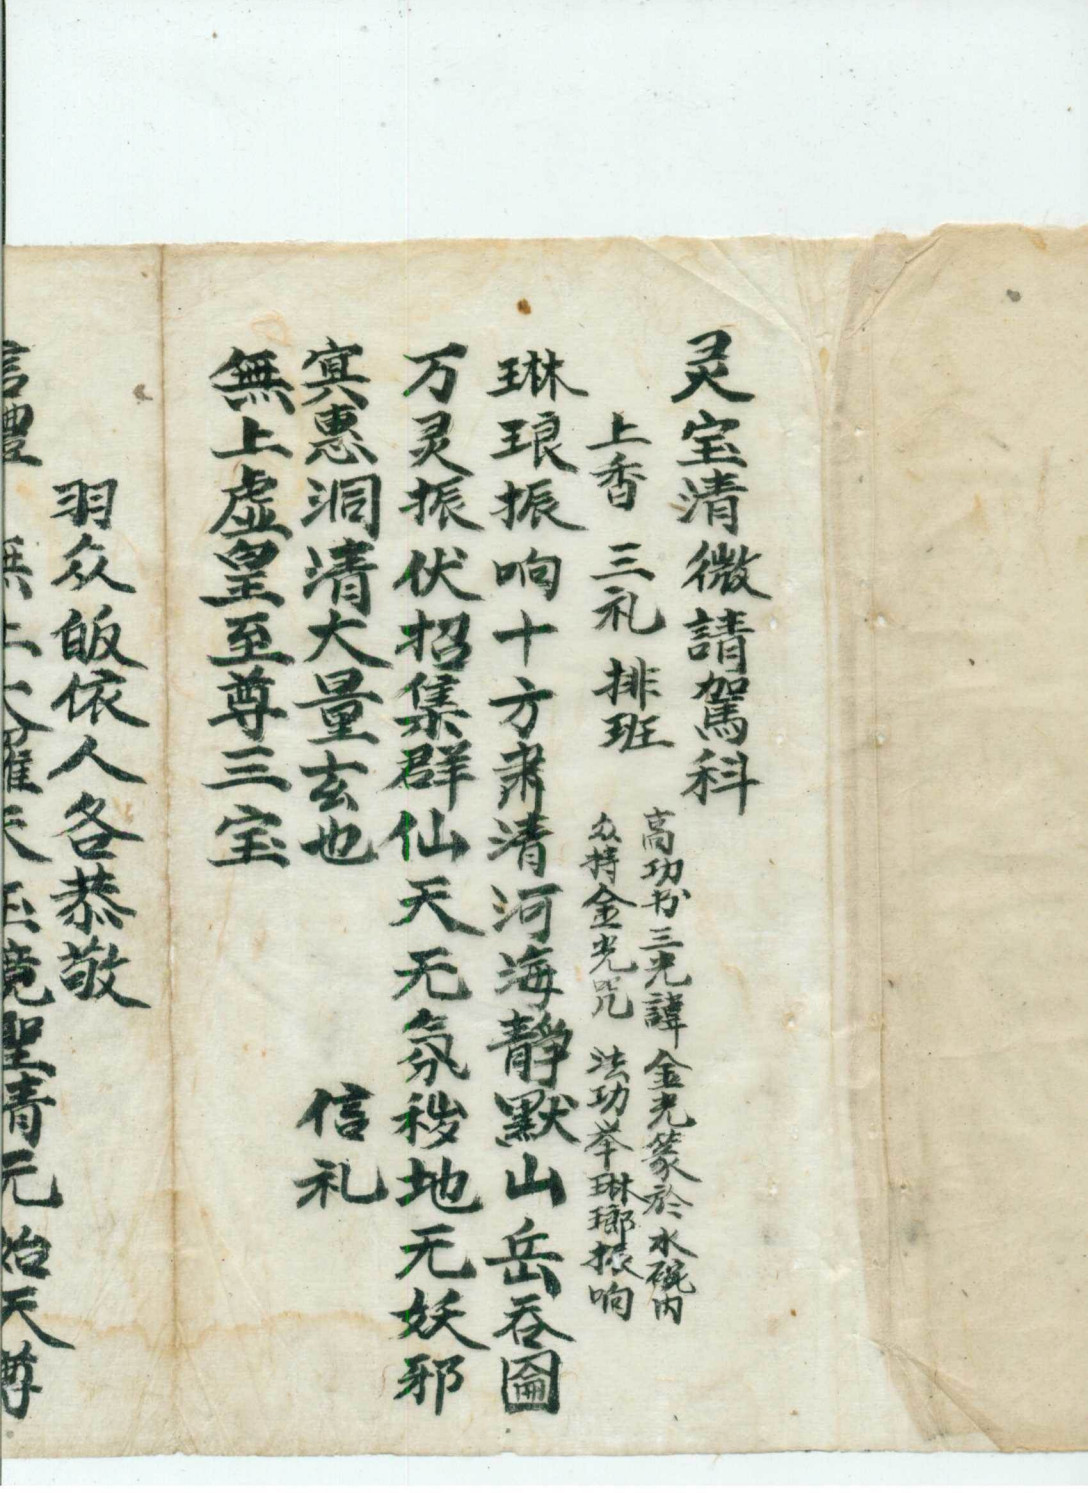 灵宝清微請駕科
上香 三礼 排班
高功书三光諱 金光篆於水碗内
众持金光咒 法功举琳瑯振响
琳琅振响十方肃清河海靜默山岳吞圇
万灵振伏招集群仙天无氛秽地无妖邪
寞惠洞清大量玄也 信礼
無上虚皇至尊三宝
羽众皈依人各恭敬
信禮 無上大羅天玉境聖清元始天尊